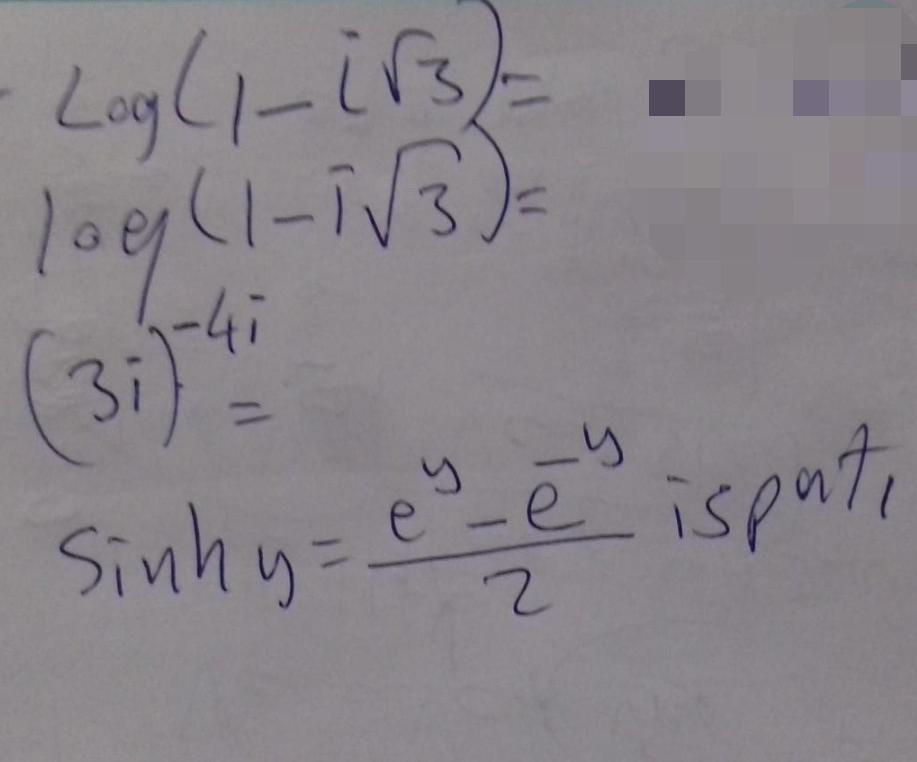 Log(1-i√3)=
log(1-i√3)=
(3i)^-4i =
Sinh y = (e^y - e^-y)/2 ispatı